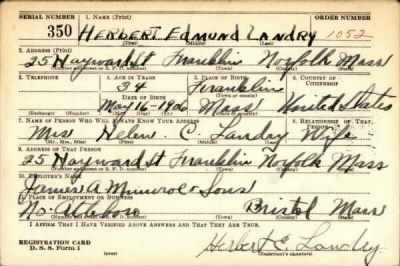 SERIAL NUMBER 1. NAME (Print) ORDER NUMBER
350 HERBERT EDMUND LANDRY 1052
(First) (Middle) (Last)
2. ADDRESS (Print)
25 Hayward St Franklin Norfolk Mass
3. TELEPHONE 4. AGE IN YEARS 5. PLACE OF BIRTH 6. COUNTRY OF CITIZENSHIP
34 Franklin
DATE OF BIRTH
May 16-1906 Mass United States
(Exchange) (Number) (Mo.) (Day) (Yr.) (State or country)
7. NAME OF PERSON WHO WILL ALWAYS KNOW YOUR ADDRESS 8. RELATIONSHIP OF THAT PERSON
Mrs Helen C. Landry Wife
(Mr., Mrs., Miss) (First) (Middle) (Last)
9. ADDRESS OF THAT PERSON
25 Hayward St Franklin Norfolk Mass
10. EMPLOYER'S NAME
James A Munroe & Sons
11. PLACE OF EMPLOYMENT OR BUSINESS
No. Attleboro Bristol Mass
I AFFIRM THAT I HAVE VERIFIED ABOVE ANSWERS AND THAT THEY ARE TRUE.
REGISTRATION CARD
D. S. S. Form 1 (over) Herbert E. Landry
(Registrant's signature)